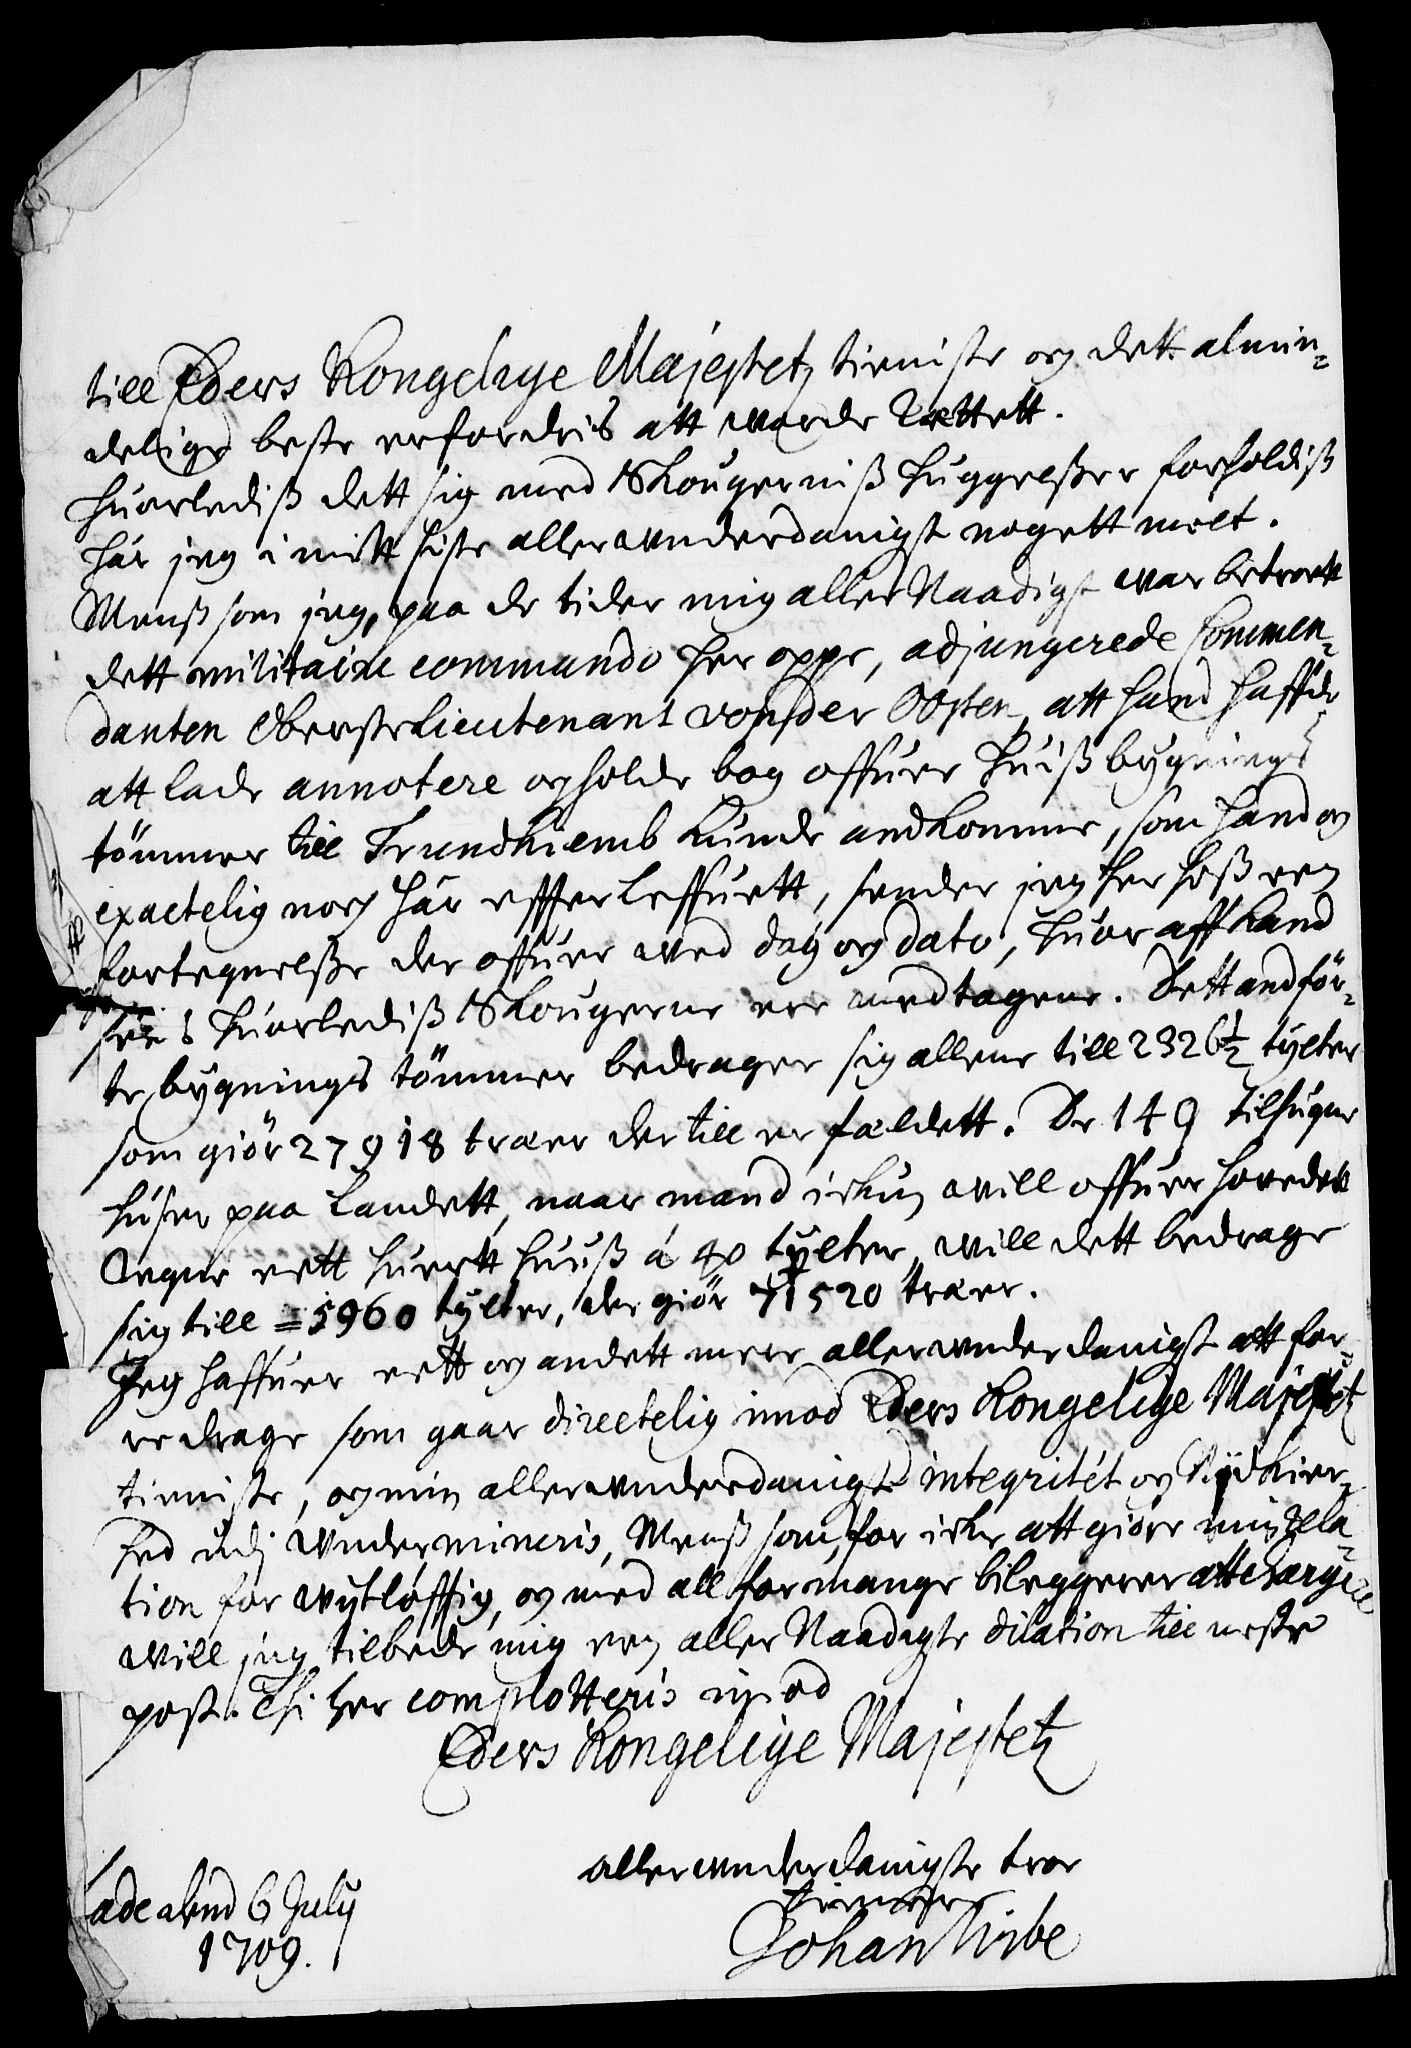 till Eders Kongelige Majestetz tieniste og dett almin¬
delige beste erfordris att worde Rettett.
huorlediss dett sig med Skougerniss huggelsser forholdiss
hår jeg i mitt siste allerwnderdanigst nogett melt.
Menss som jeg, paa de tider mig aller Naadigst war betroett
dett militaire commando her oppe, adjungerede Commen¬
danten Oberstelieutenant von der Osten, att hand haffde
att lade annotere og holde bog offuer huiss bygnings
tömmer till Trundhiemb kunde andkomme, som hand og
exactelig nock hår effterleffuett, sender jeg her hoss een
fortegnelsse der offuer med dag og dato, huor aff kand
sees huorlediss Skougerne ere medtagene. Dett andför¬
te bygnings tömmer bedrager sig allene till 2326½ tylter
som giör 27918 træer der till er fældett. De 149 tilhugne
huser paa Landett, naar mand ickun will offuer hovedett
Regne eett huertt huuss á 40 tylter, will dett bedrage
sig till = 5960 tylter, der giör 71520 træer.
Jeg haffuer eett og andett mere allerwnderdanigst att for¬
re drage som gaar directelig imod Eders Kongelige Majestetz
tieniste, og min allerwnderdanigste integritét og Nidkier¬
hed udj wndermineris, Menss som, for icke att giöre min Rela¬
tion for wytløfftig, og med all for mange bileggerer att chargere
will jeg tilbede mig een aller Naadigste dilation till neste
post. Thi her complotteris imod
Eders Kongelige Majestetz
allerwnderdanigste troe
tienere
Johan Wibe
Lade alend 6 July
1709.